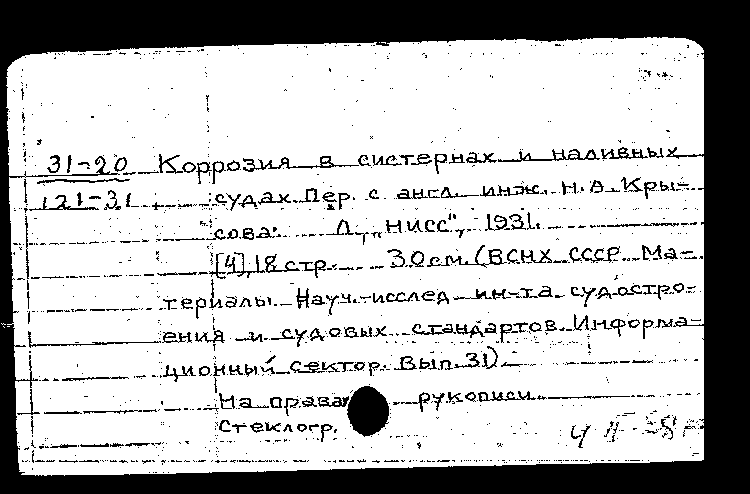 31-20 Коррозия в систернах и наливных
121-31 судах. Пер. с англ. инж. Н.А. Кры-
сова. Л., „НИСС", 1931.
[4], 18 стр. 30 см. (ВСНХ СССР. Ма-
териалы Науч.-исслед. ин-та судостро-
ения и судовых стандартов. Информа-
ционный сектор. Вып. 31).
На права рукописи.
Стеклогр.